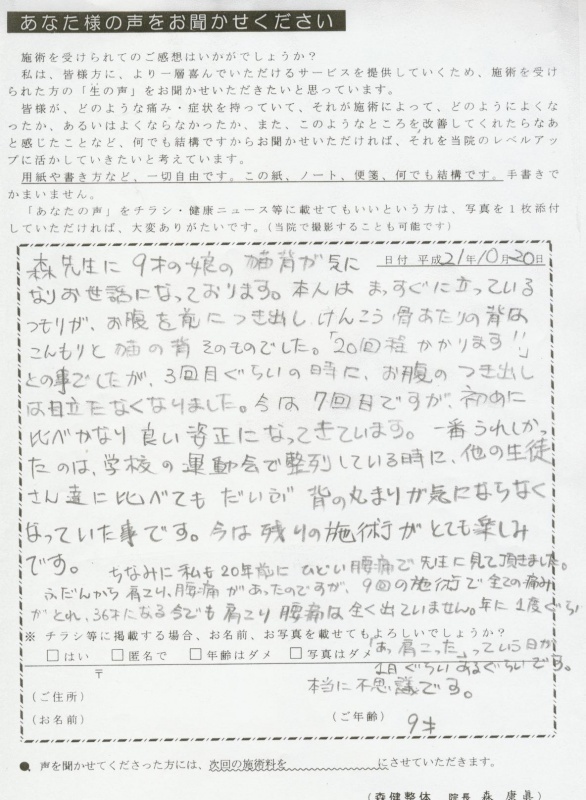 あなた様の声をお聞かせください
施術を受けられてのご感想はいかがでしょうか？
私は、皆様方に、より一層喜んでいただけるサービスを提供していくため、施術を受け
られた方の「生の声」をお聞かせいただきたいと思っています。
皆様が、どのような痛み・症状を持っていて、それが施術によって、どのようによくな
ったか、あるいはよくならなかったか、また、このようなところを改善してくれたらなあ
と感じたことなど、何でも結構ですからお聞かせいただければ、それを当院のレベルアッ
プに活かしていきたいと考えています。
用紙や書き方など、一切自由です。この紙、ノート、便箋、何でも結構です。手書きで
かまいません。
「あなたの声」をチラシ・健康ニュース等に載せてもいいという方は、写真を1枚添付
していただければ、大変ありがたいです。（当院で撮影することも可能です）
日付 平成21年10月20日
森先生に 9才の娘の 猫背が気に
なりお世話になっております。本人は まっすぐに立っている
つもりが、お腹を前につき出し けんこう骨あたりの背は
こんもりと 猫の背 そのものでした。「20回程 かかります!!」
との事でしたが、3回目ぐらいの時に、お腹のつき出し
は目立たなくなりました。今は 7回目ですが、初めに
比べかなり 良い姿正になってきています。 一番うれしかっ
たのは、学校の 運動会で整列している時に、他の生徒
さん達に比べても だいぶ 背の丸まりが気にならなく
なっていた事です。今は 残りの施術がとても楽しみ
です。 ちなみに 私も20年前に ひどい腰痛で 先生に見て頂きました。
ふだんから 肩こり、腰痛があったのですが、9回の施術で 全ての痛み
がとれ、36才になる今でも 肩こり 腰痛は 全く出ていません。年に 1度ぐらい
※ チラシ等に掲載する場合、お名前、お写真を載せてもよろしいでしょうか？
□はい □匿名で □年齢はダメ □写真はダメ
「あ、肩こった」っていう日が
1日ぐらいあるぐらいです。
本当に不思議です。
〒
（ご住所）
（お名前） （ご年齢） 9才
● 声を聞かせてくださった方には、次回の施術料を にさせていただきます。
（森健整体 院長 森 康眞）